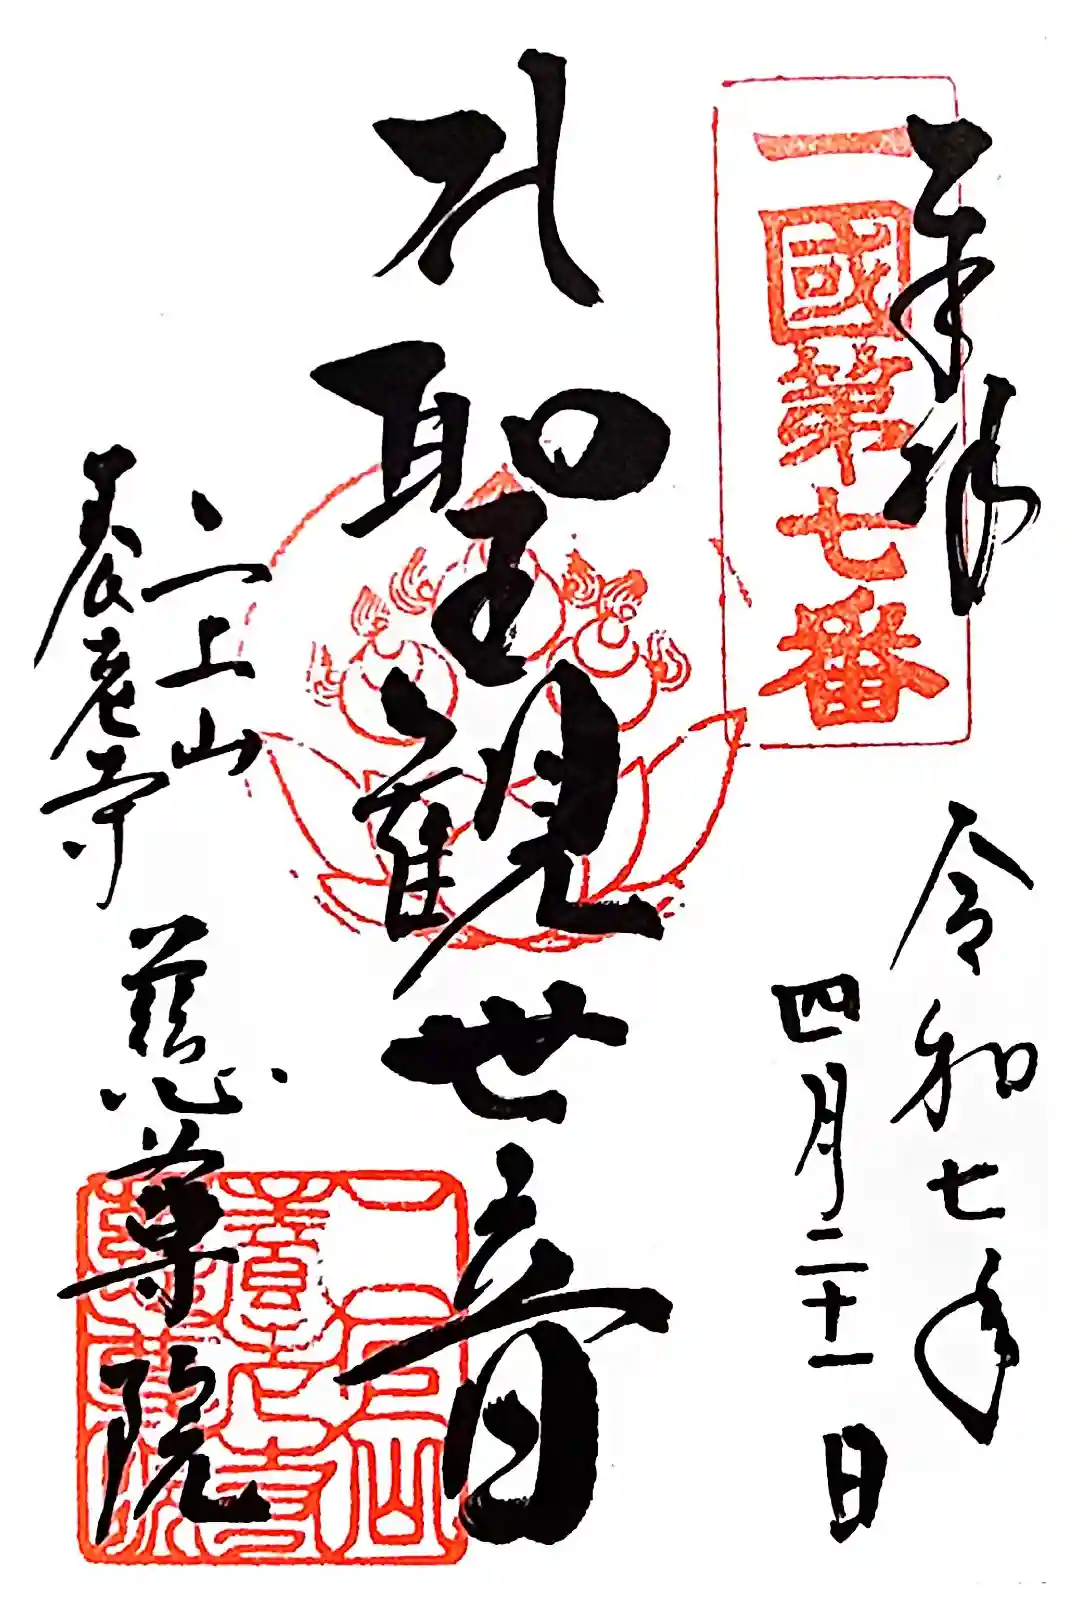 奉拝
一國第七番
令和七年
四月二十一日
孔聖観世音
二上山
養老寺
慈尊院